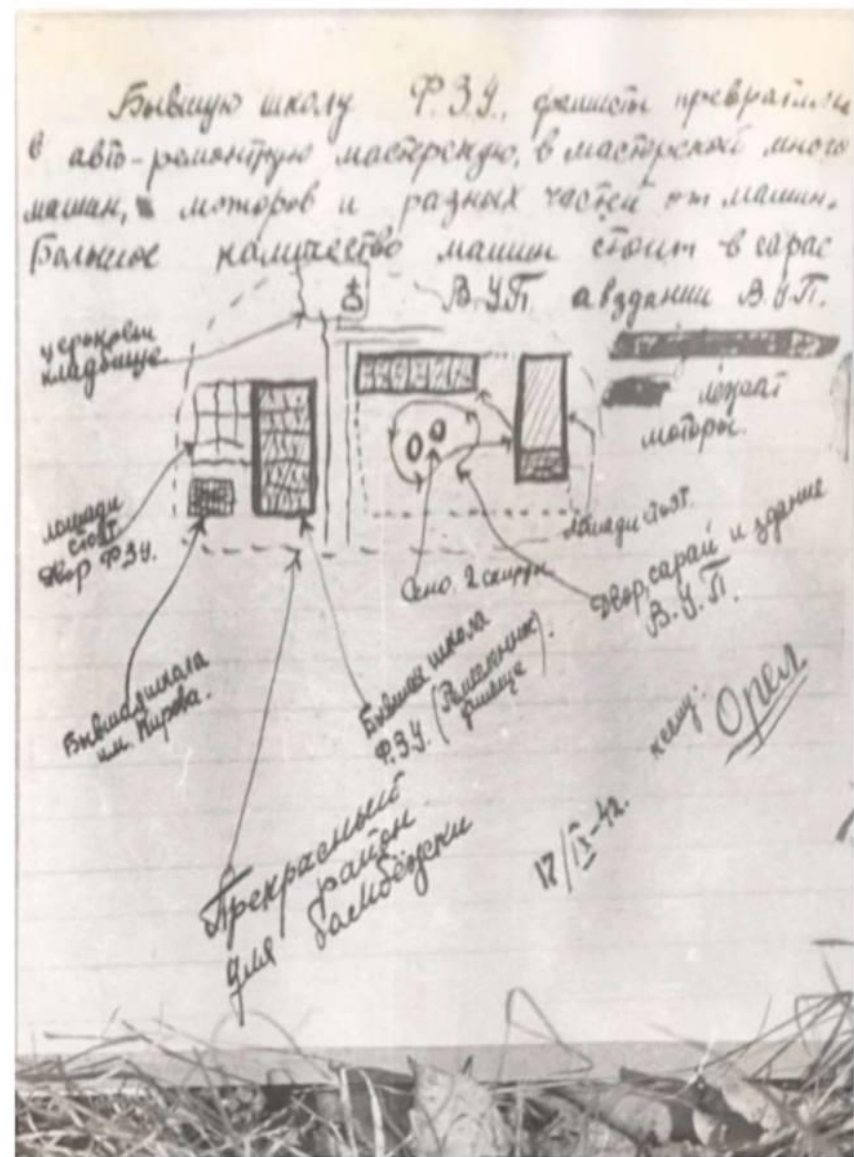 Бывшую школу Ф.З.У., фашисты превратили
в авто-ремонтную мастерскую, в мастерской много
машин, моторов и разных частей от машин.
Большое количество машин стоит в сарае
В.У.П. а в здании В.У.П.
лежат
моторы.
церковь и
кладбище
лошади
стоят
Двор Ф.З.У.
лошади стоят.
Сено. 2 скирды
Двор, сарай и здание
В.У.П.
Бывшая школа
им. Кирова.
Бывшая школа
Ф.З.У. (Ремесленник
училище).
Прекрасный
район
для бомбёжки
17/IX-42.
к сему: Орел